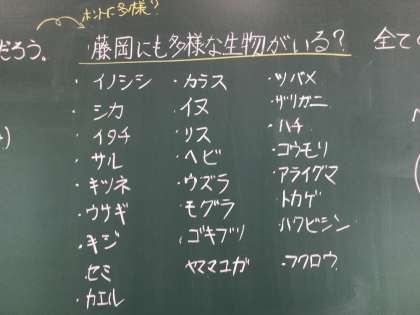 ホントに多様?
だろう。
藤岡にも多様な生物がいる?
全て
・イノシシ
・シカ
・イタチ
・サル
・キツネ
・ウサギ
・キジ
・セミ
・カエル
・カラス
・イヌ
・リス
・ヘビ
・ウズラ
・モグラ
・ゴキブリ
ヤママユガ
・ツバメ
・ザリガニ
・ハチ
・コウモリ
・アライグマ
・トカゲ
・ハクビシン
・フクロウ